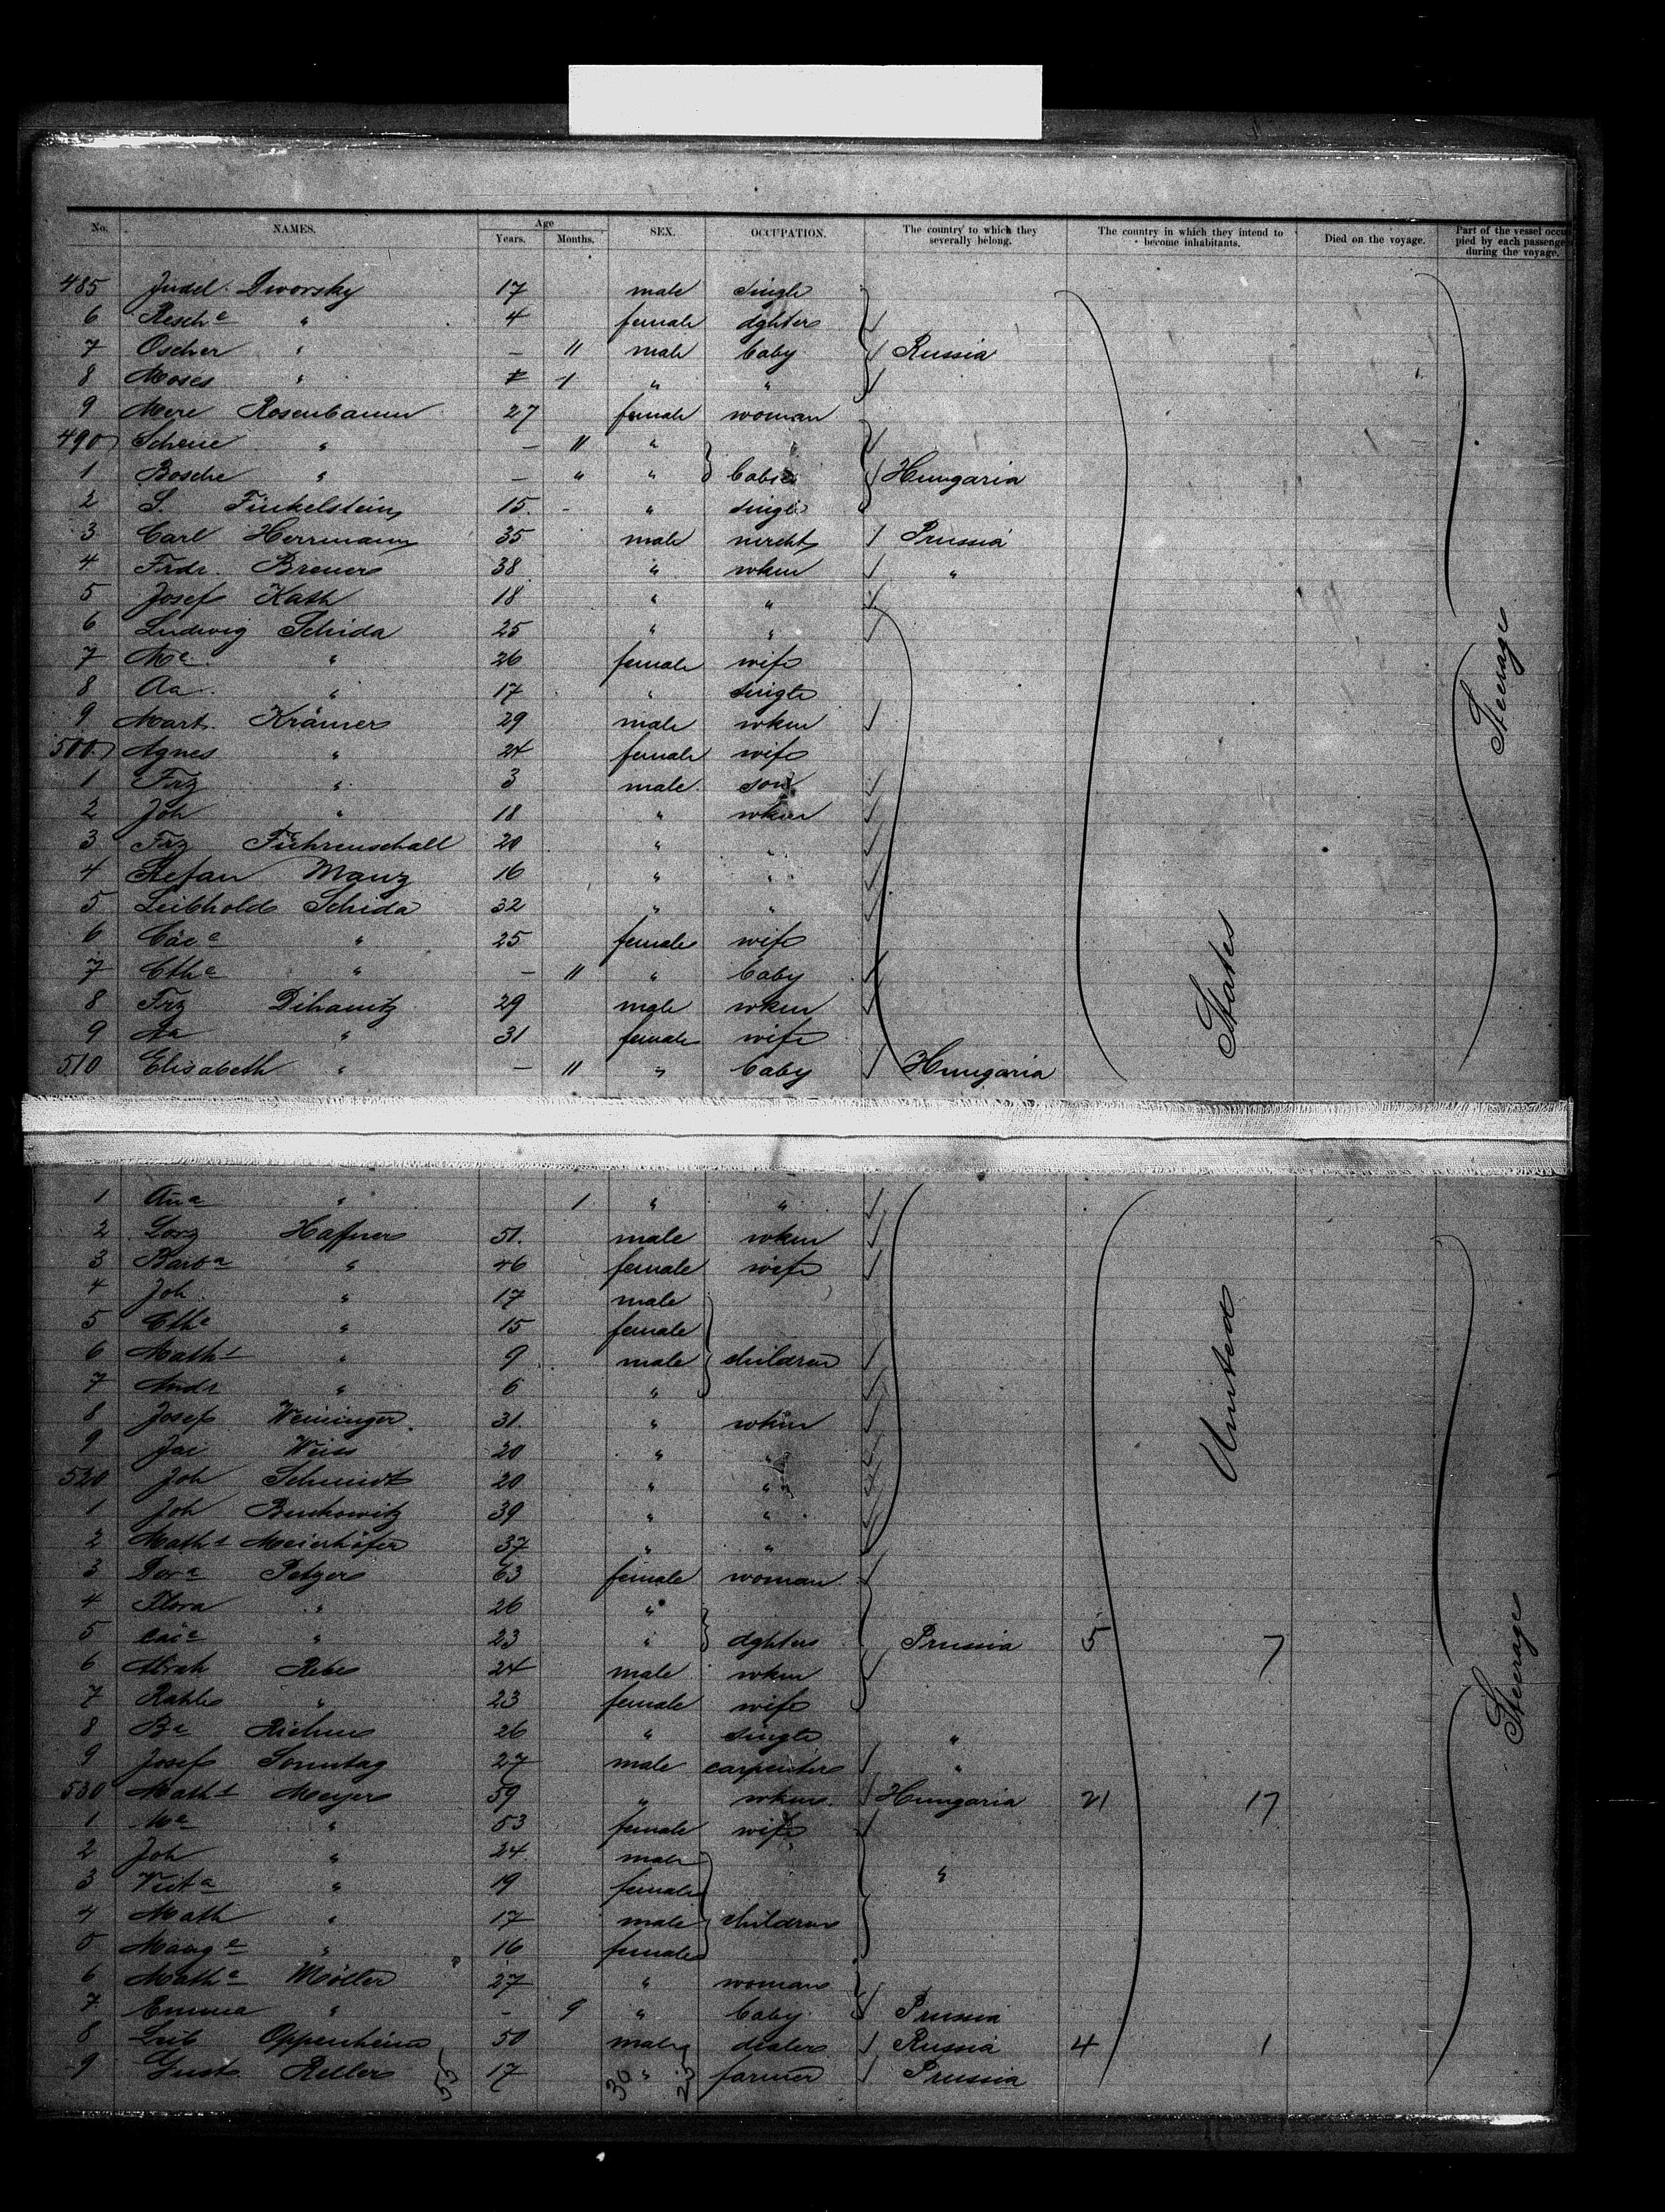 No. NAMES. Age Years. Months. SEX. OCCUPATION. The country to which they severally belong. The country in which they intend to become inhabitants. Died on the voyage. Part of the vessel occupied by each passenger during the voyage.
485 Judel Dworsky 17 male single
6 Resche " 4 female dghters
7 Oscher " — 11 male baby Russia
8 Moses " 1 " "
9 Mere Rosenbaum 27 female woman
490 Scheine " — 11 " "
1 Bosche " — " " babies Hungaria
2 S. Finkelstein 15 - " single
3 Carl Herrmann 35 male mercht Prussia
4 Frdr. Breuer 38 " wkm "
5 Josef Kath 18 " "
6 Ludwig Schida 25 " "
7 Ma " 26 female wife
8 Aa " 17 " single
9 Mart. Krämer 29 male wkm
500 Agnes " 24 female wife
1 Frz " 3 male son
2 Joh " 18 " wkm
3 Frz 20 " "
4 Stefan Manz 16 " "
5 Leibhold Schida 32 " "
6 Cäce " 25 female wife
7 Ctha " — 11 " baby
8 Frz 29 male wkm
9 Aa " 31 female wife
510 Elisabeth " — 11 " baby Hungaria
States
Steerage
1 Ana " 1 " "
2 Lorz Haffner 51 male wkm
3 Barba " 46 female wife
4 Joh " 17 male
5 Cthe " 15 female
6 Maths " 9 male children
7 Andr " 6 "
8 Josef Weininger 31 " wkm
9 Weiss 20 " "
520 Joh Schmidt 20 " "
1 Joh Buskowitz 39 " "
2 Maths Meierhöfer 37 " "
3 Dora Petzer 63 female woman
4 Flora " 26 "
5 Cäce " 23 " dghters Prussia 5 7
6 Abrah Rebe 24 male wkm
7 Rahle " 23 female wife
8 Ba 26 " single "
9 Josef Sonntag 27 male carpenter "
530 Maths Meyer 59 " wkm Hungaria 21 17
1 Ma " 53 female wife
2 Joh " 24 male "
3 " 19 female
4 Math " 17 male children
5 Marge " 16 female
6 Mathe Möller 27 " woman
7 Emma " - 9 " baby Prussia
8 Leib Oppenheim 50 male dealer Russia 4 1
9 Gust. Reller 17 " farmer Prussia
55 30 25
United
Steerage